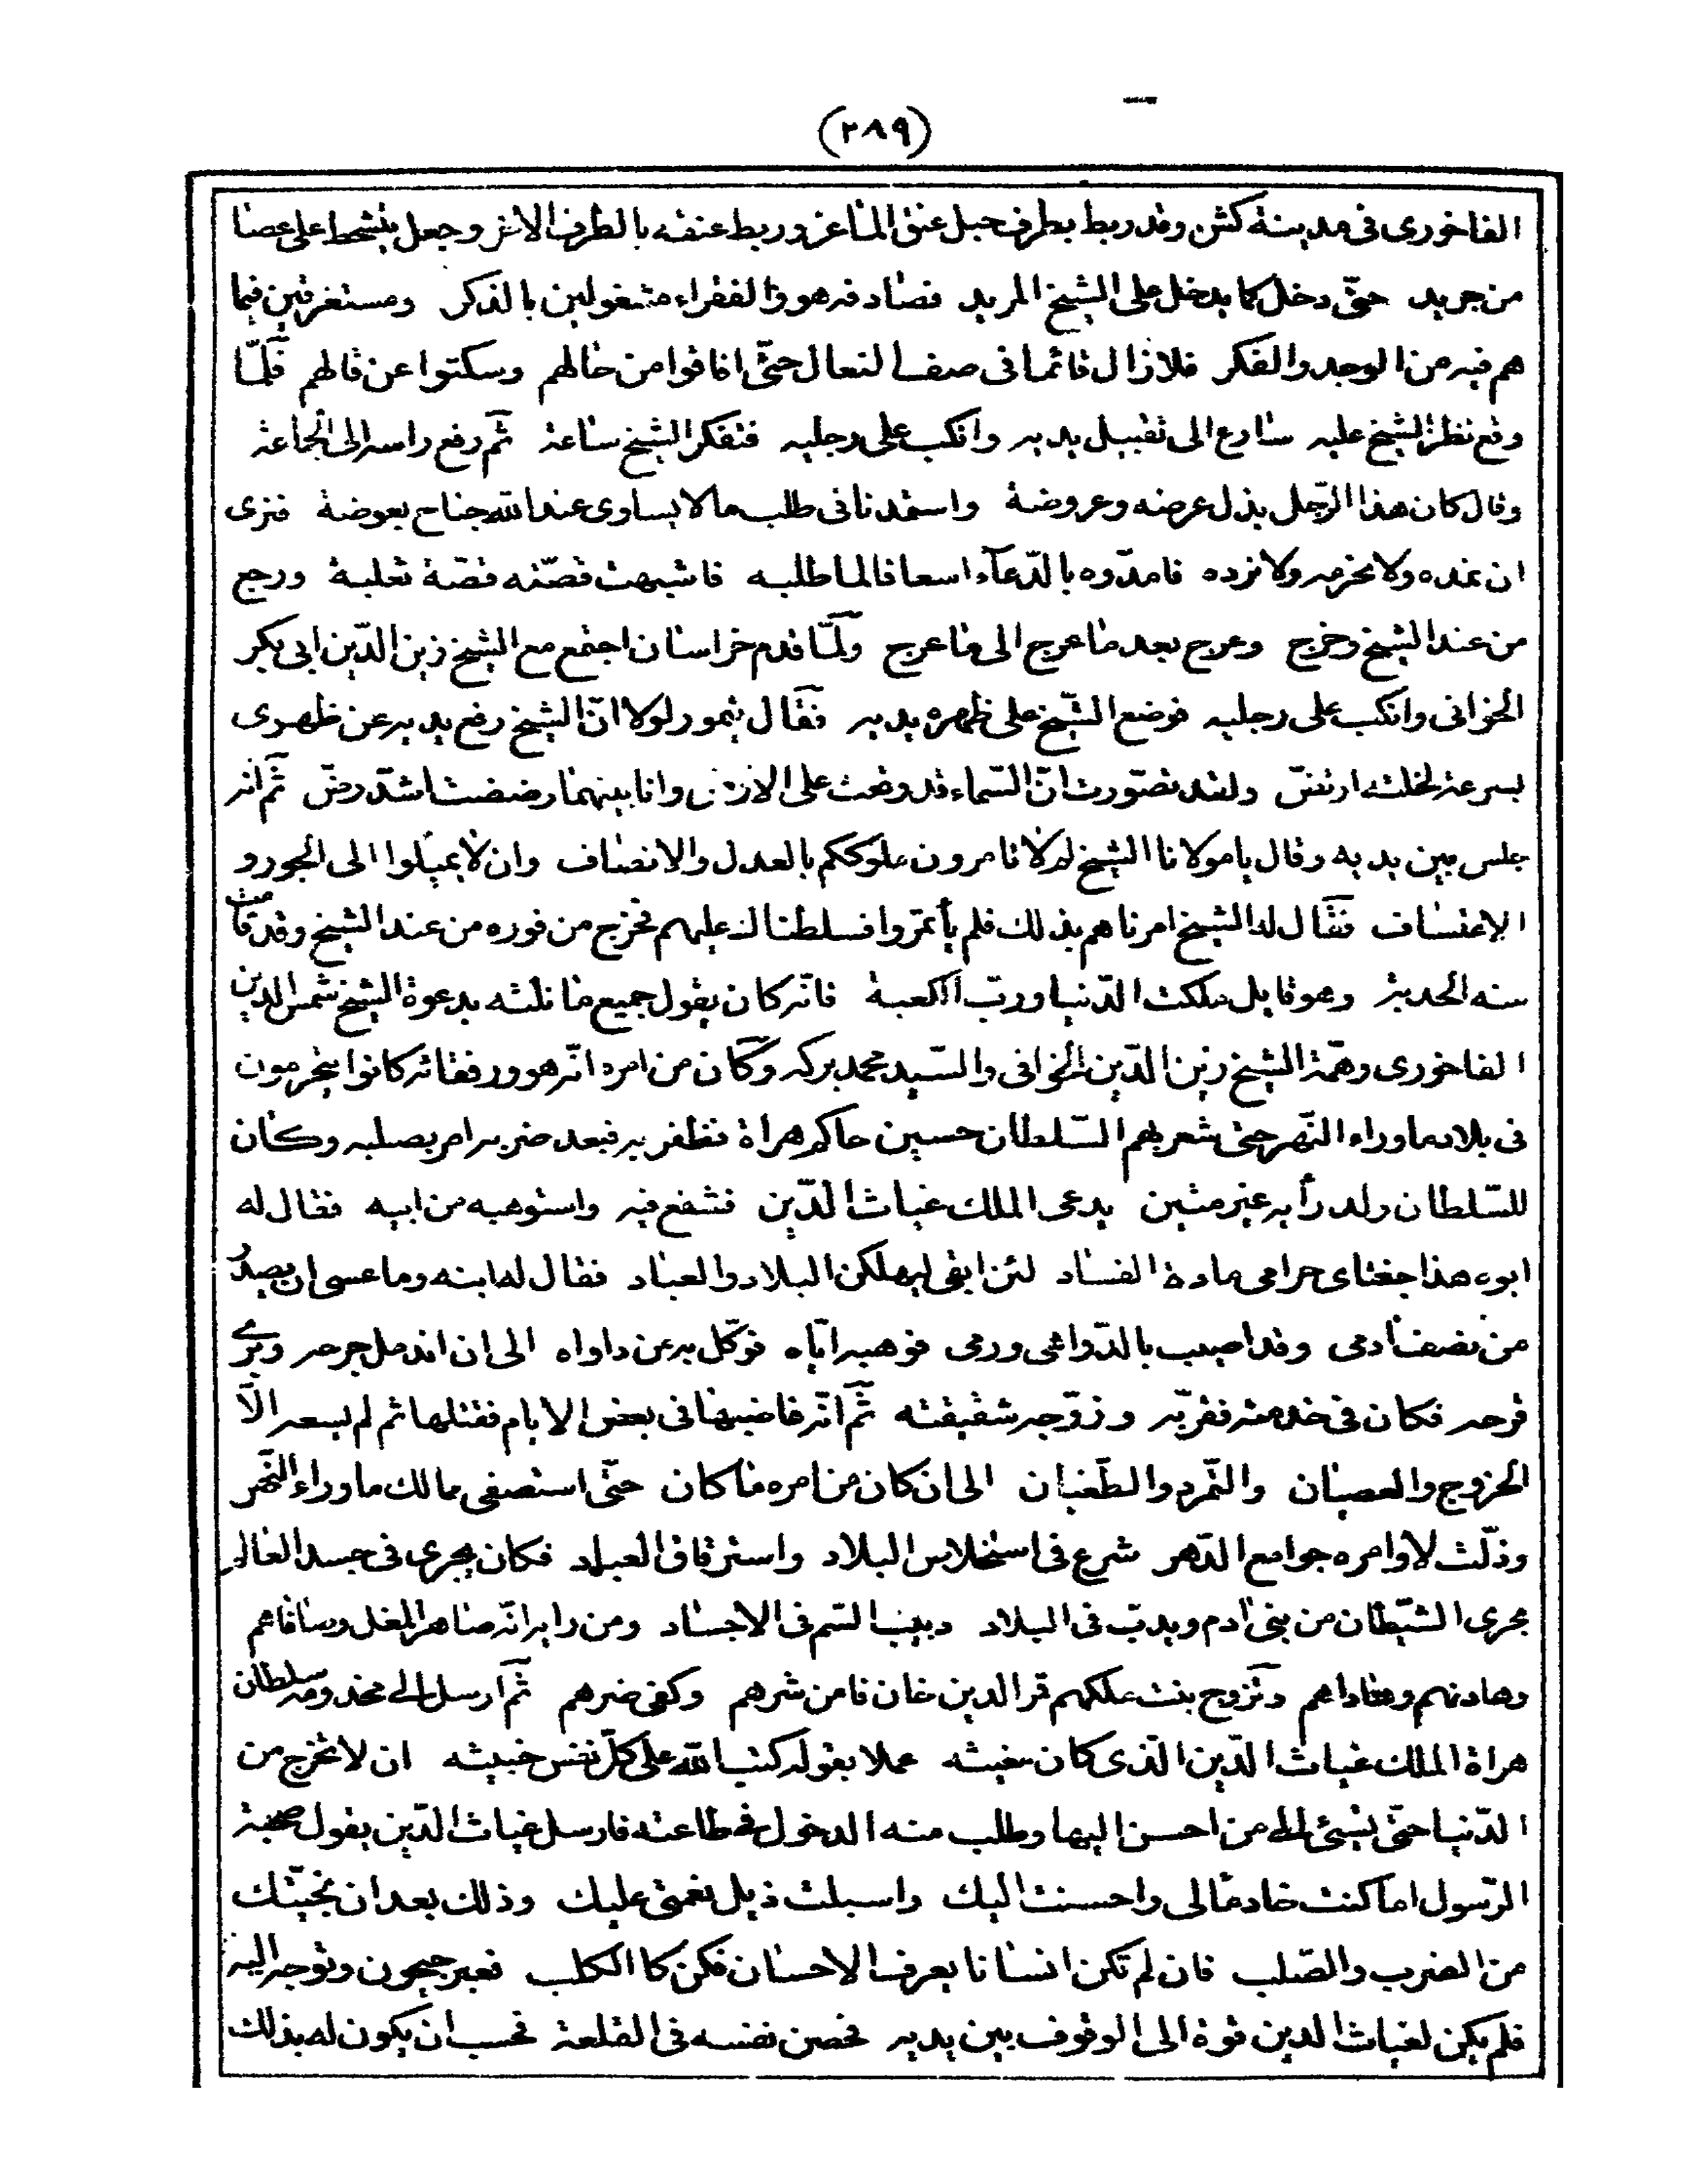 (٢٨٩)
الفاخورى فى مدينة كش وقد ربط بطرف حبل عنق الماعز وربط عنقه بالطرف الاخر وجعل يتشحط على عصا
من جريد حتّى دخل كما يدخل على الشيخ المريد فصادفه هو والفقراء مشغولين بالذكر ومستغرقين فيما
هم فيه من الوجد والفكر فلا زال قائما فى صف النعال حتّى افاقوا من حالهم وسكتوا عن قالهم فلمّا
وقع نظر الشيخ عليه سارع الى تقبيل يديه وانكب على رجليه فتفكر الشيخ ساعة ثم رفع راسه الى الجماعة
وقال كان هذا الرّجل بذل عرضه وعروضة واستمدنا فى طلب ما لا يساوى عند الله جناح بعوضة فنرى
ان نمده ولا نحرمه ولا نرده فامدّوه بالدّعآء اسعافا لما طلبه فاشبهت قصّته قصّة ثعلبة ورجع
من عند الشيخ وخرج وعرج بعد ما عرج الى ما عرج ولمّا قدم خراسان اجتمع مع الشيخ زين الدّين ابى بكر
الخوافى وانكب على رجليه فوضع الشّيخ على ظهره يديه فقال تيمور لولا انّ الشيخ رفع يديه عن ظهرى
بسرعة لخلته ارتضّ ولقد تصّورت انّ السّماء قد وقعت على الارض وانا بينهما رضضت اشدّ رضّ ثم انه
جلس بين يديه وقال يا مولانا الشيخ لم لا تامرون ملوككم بالعدل والانصاف وان لا يميلوا الى الجور و
الاعتساف فقال له الشيخ امرناهم بذلك فلم يأتمروا فسلطناك عليهم فخرج من فوره من عند الشيخ وقد قامت
منه الحدبة وهو قايل ملكت الدّنيا وربّ الكعبة فانّه كان يقول جميع ما نلته بدعوة الشيخ شمس الدين
الفاخورى وهمّة الشيخ زين الدّين الخوافى والسّيد محمد بركه وكان من امره انّه هو ورفقائه كانوا يتحرمون
فى بلاد ماوراء النّهر حتى شعر بهم السّلطان حسين حاكم هراة فظفر به فبعد ضربه امر بصلبه وكان
للسّلطان ولد رأيه غير متين يدعى الملك غياث الدّين فشفع فيه واستوهبه من ابيه فقال له
ابوه هذا جغتاى حرامى مادة الفساد لئن ابقى ليهلكن البلاد والعباد فقال له ابنه وما عسى ان يصدر
من نصف آدمى وقد اصيب بالدّواهى ورمى فوهبه ايّاه فوكّل به من داواه الى ان اندمل جرحه وبرئ
قرحه فكان فى خدمته فقرّبه وزوّجه شقيقته ثم انّه غاضبها فى بعض الايام فقتلها ثم لم يسعه الّا
الخروج والعصيان والتّمرد والطّغيان الى ان كان من امره ما كان حتّى استصفى ممالك ماوراء النّهر
وذلّت لاوامره جوامع الدّهر شرع فى استخلاص البلاد واسترقاق العباد فكان يجرى فى جسد العالم
مجرى الشّيطان من بنى آدم ويدبّ فى البلاد دبيب السّم فى الاجساد ومن رايه انّه صاهر المغل وصافاهم
وهادنهم وهاداهم وتزوج بنت ملكهم قمر الدين خان فامن شرهم وكفى ضرهم ثم ارسل الى مخدومه سلطان
هراة الملك غياث الدّين الذى كان مغيثه عملا بقوله كتب الله على كلّ نفس خبيثه ان لا تخرج من
الدّنيا حتّى تسئ الى من احسن اليها وطلب منه الدخول فى طاعته فارسل غياث الدّين يقول صحبة
الرّسول اما كنت خادما لى واحسنت اليك واسبلت ذيل نعمتى عليك وذلك بعد ان نجيّتك
من الضرب والصّلب فان لم تكن انسانا يعرف الاحسان فكن كالكلب فعبر جيحون وتوجه اليه
فلم يكن لغياث الدين قوة الى الوقوف بين يديه فحصن نفسه فى القلعة فحسب ان يكون له بذلك